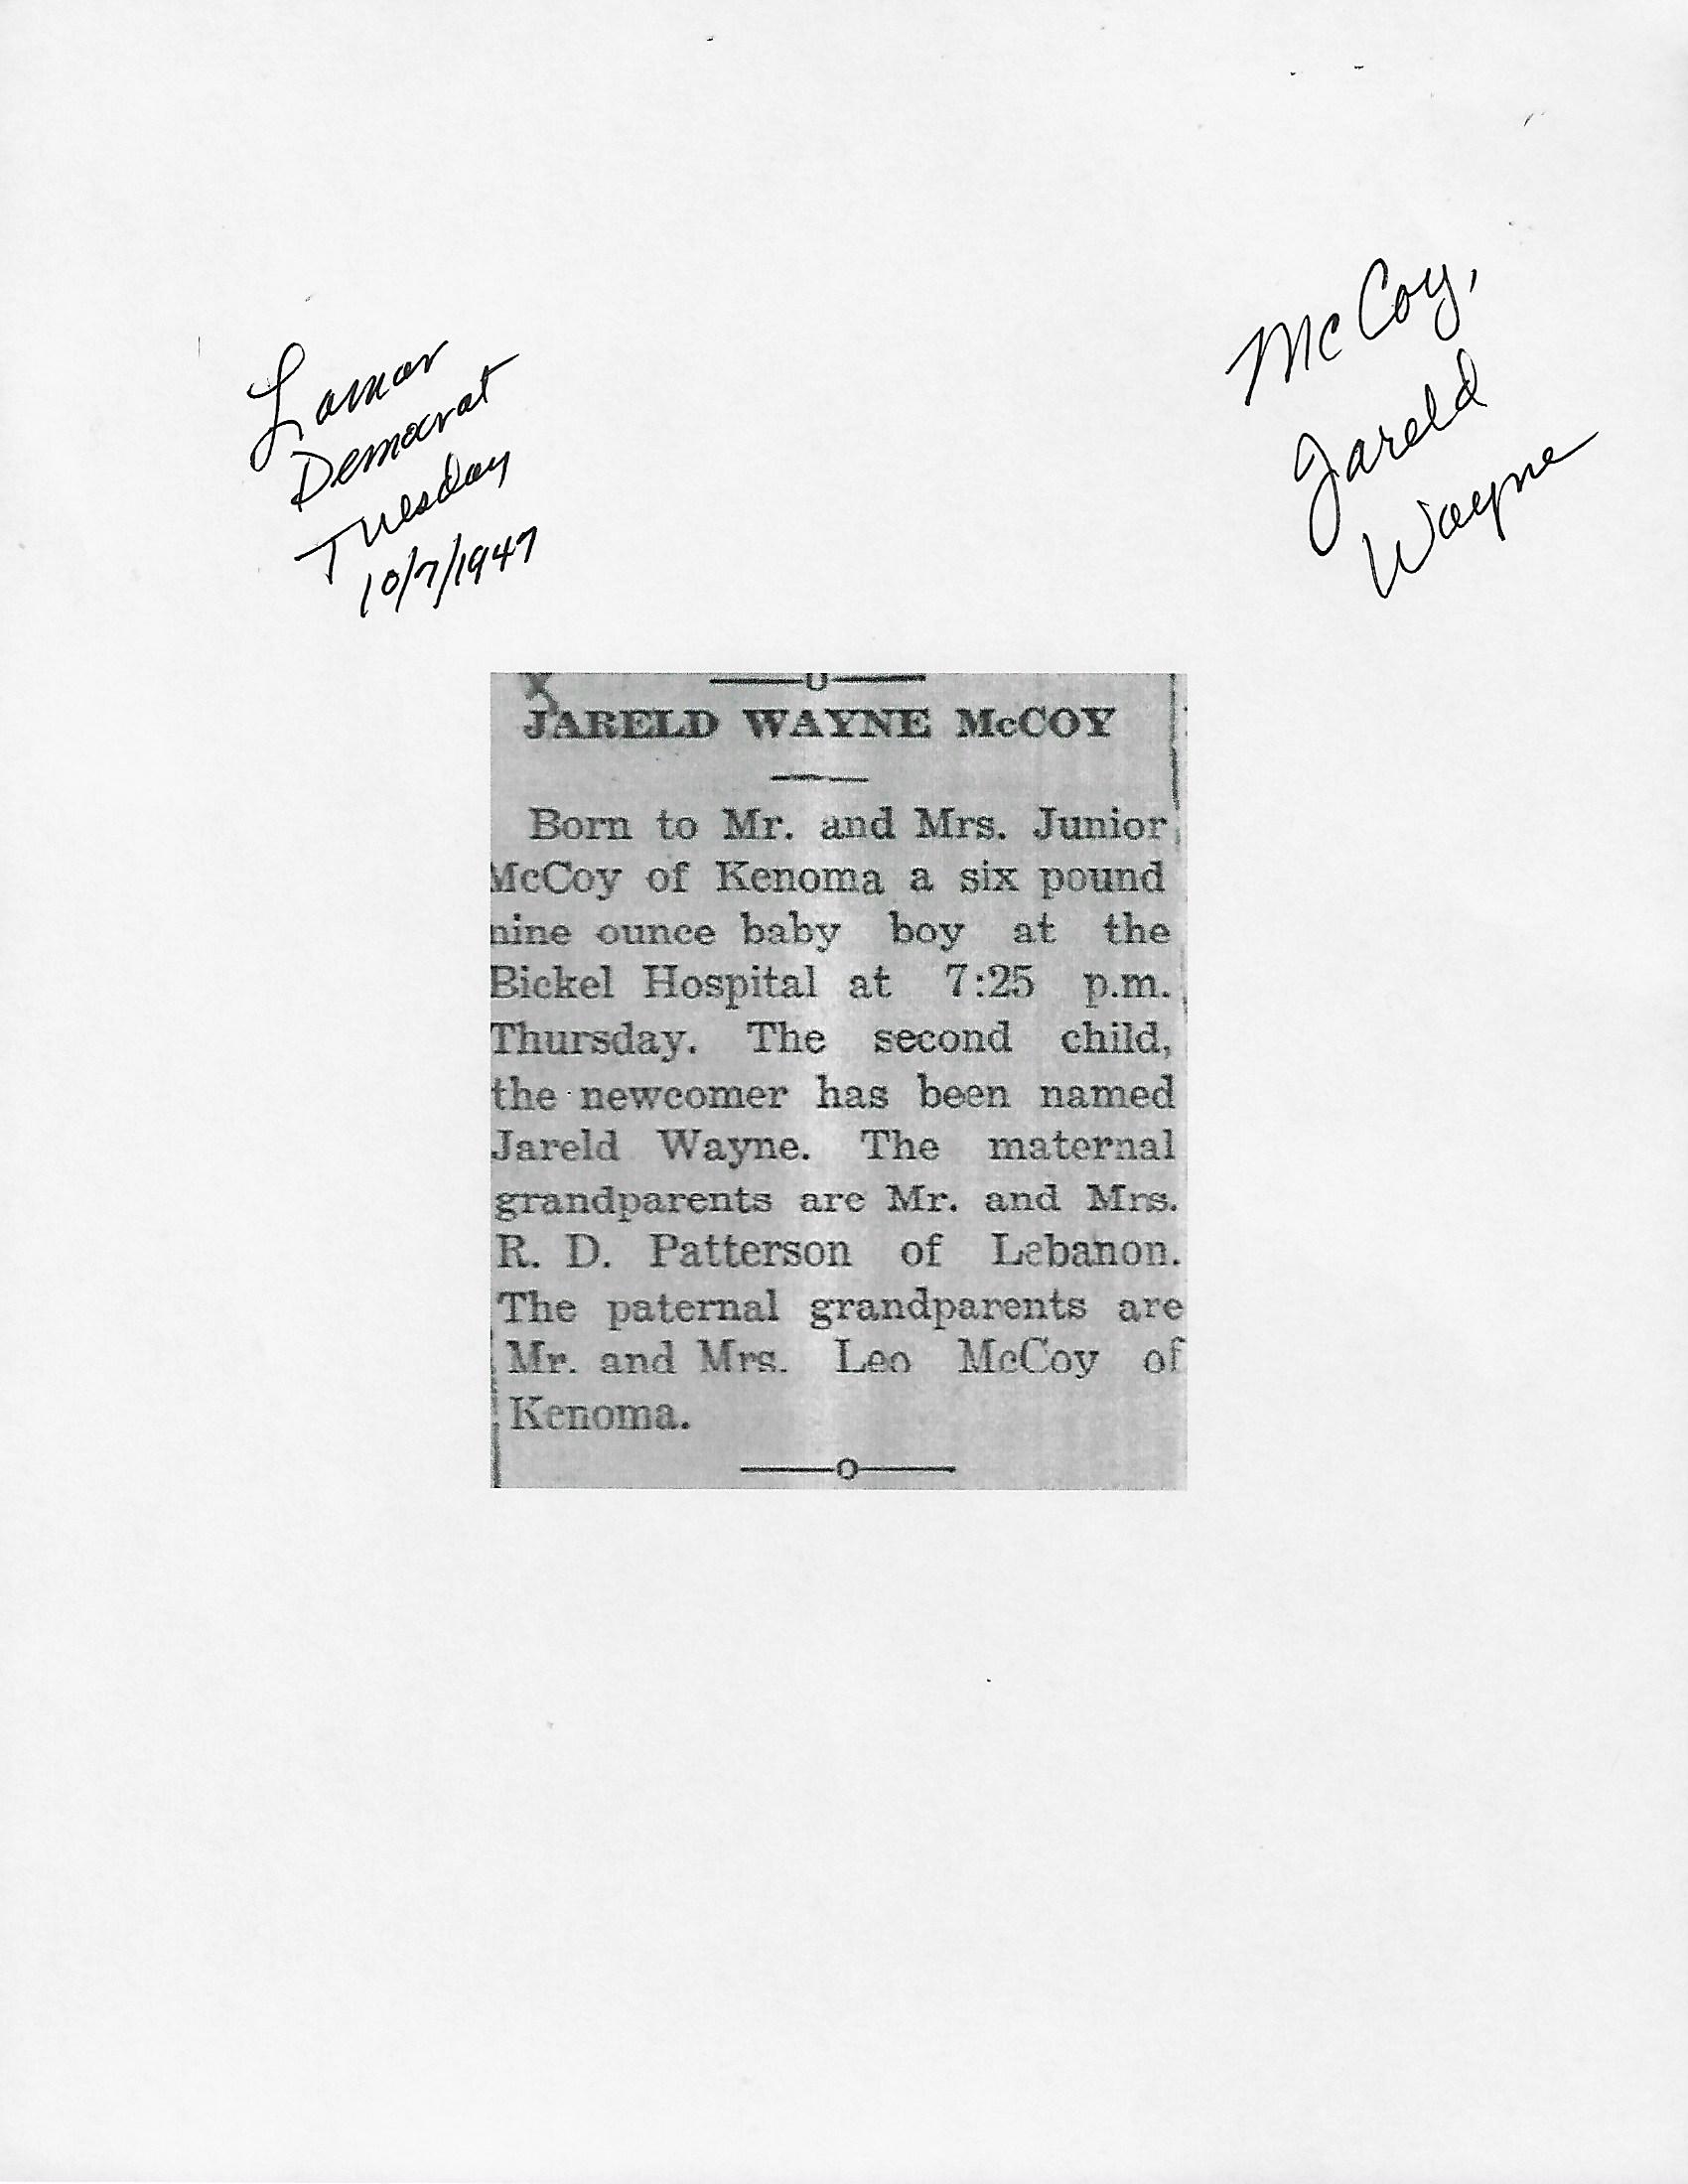 McCoy,
Jareld
Wayne
Lamar
Democrat
Tuesday
10/7/1947
JARELD WAYNE McCOY
Born to Mr. and Mrs. Junior
McCoy of Kenoma a six pound
nine ounce baby boy at the
Bickel Hospital at 7:25 p.m.
Thursday. The second child,
the newcomer has been named
Jareld Wayne. The maternal
grandparents are Mr. and Mrs.
R. D. Patterson of Lebanon.
The paternal grandparents are
Mr. and Mrs. Leo McCoy of
Kenoma.